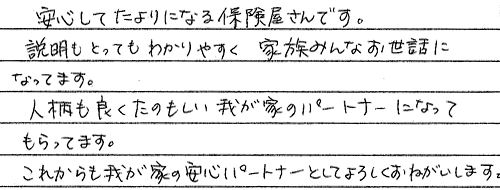 安心してたよりになる保険屋さんです。
説明もとってもわかりやすく 家族みんなお世話に
なってます。
人柄も良くたのもしい我が家のパートナーになって
もらってます。
これからも我が家の安心パートナーとしてよろしくおねがいします。